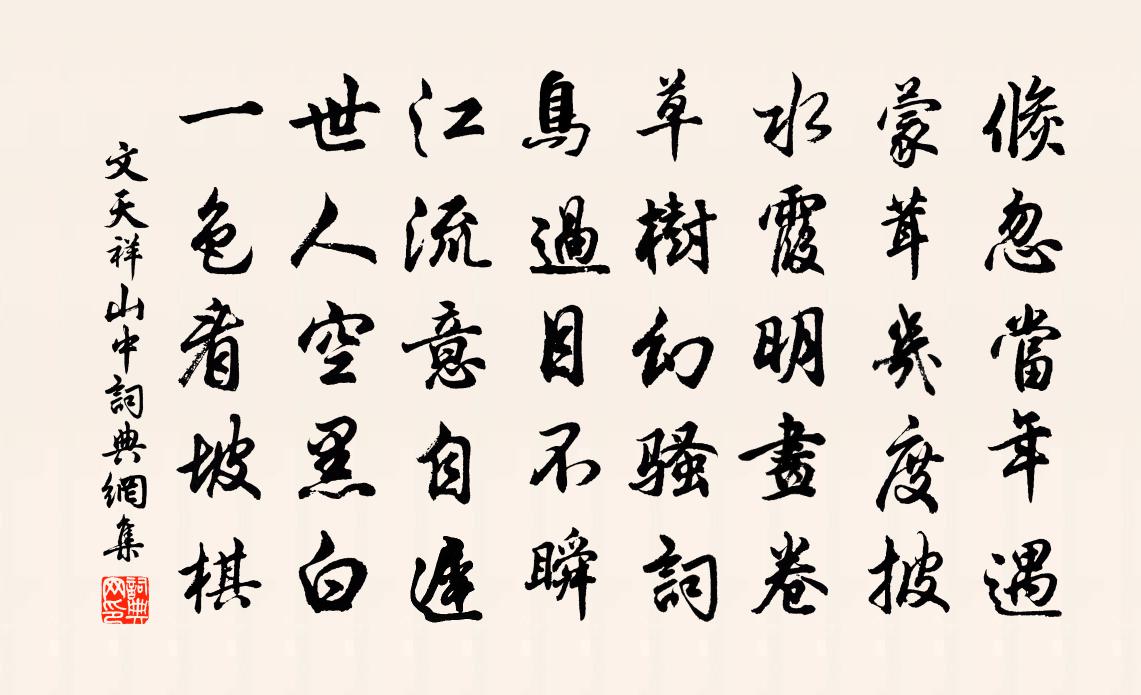 倏忽當年遇
蒙茸幾度披
水霞明畫卷
草樹幻騷詞
鳥過目不瞬
江流意自遲
世人空黑白
一色看坡棋
文天祥山中詞典網集
詞典网印